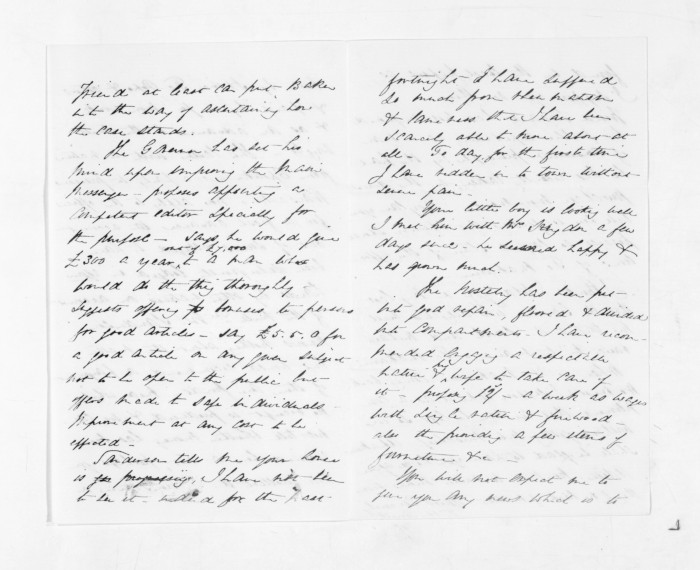 Friend at least can put Baker
into the way of ascertaining how
the case stands.
The Governor has set his
mind upon improving the Maori
Messenger - proposes appointing a
competent editor specially for
the purpose - says he would give
out of £7,000
£300 a year, to a man who
would do the thing thoroughly -
suggests offering bonuses to persons
for good articles - say £5.5.0 for
a good article on any given subject
not to be open to the public but
offers made to safe individuals -
Improvement at any cost to be
effected -
Sanderson tells me your house
is progressing, I have not been
to see it - indeed for the last
fortnight I have suffered
so much from rheumatism
& lameness that I have been
scarcely able to move about at
all - To day for the first time
I have ridden in to town without
severe pain.
Your little boy is looking well
I met him with Mrs a few
days since - he seemed happy &
has grown much.
The Hostelry has been put
into good repair, floored & divided
into compartments. I have recom-
mended engaging a respectable
native & wife to take care of
it - a week as wages
with single ration & firewood -
also the providing a few items of
furniture &c -
You will not expect me to
give you any news which is to